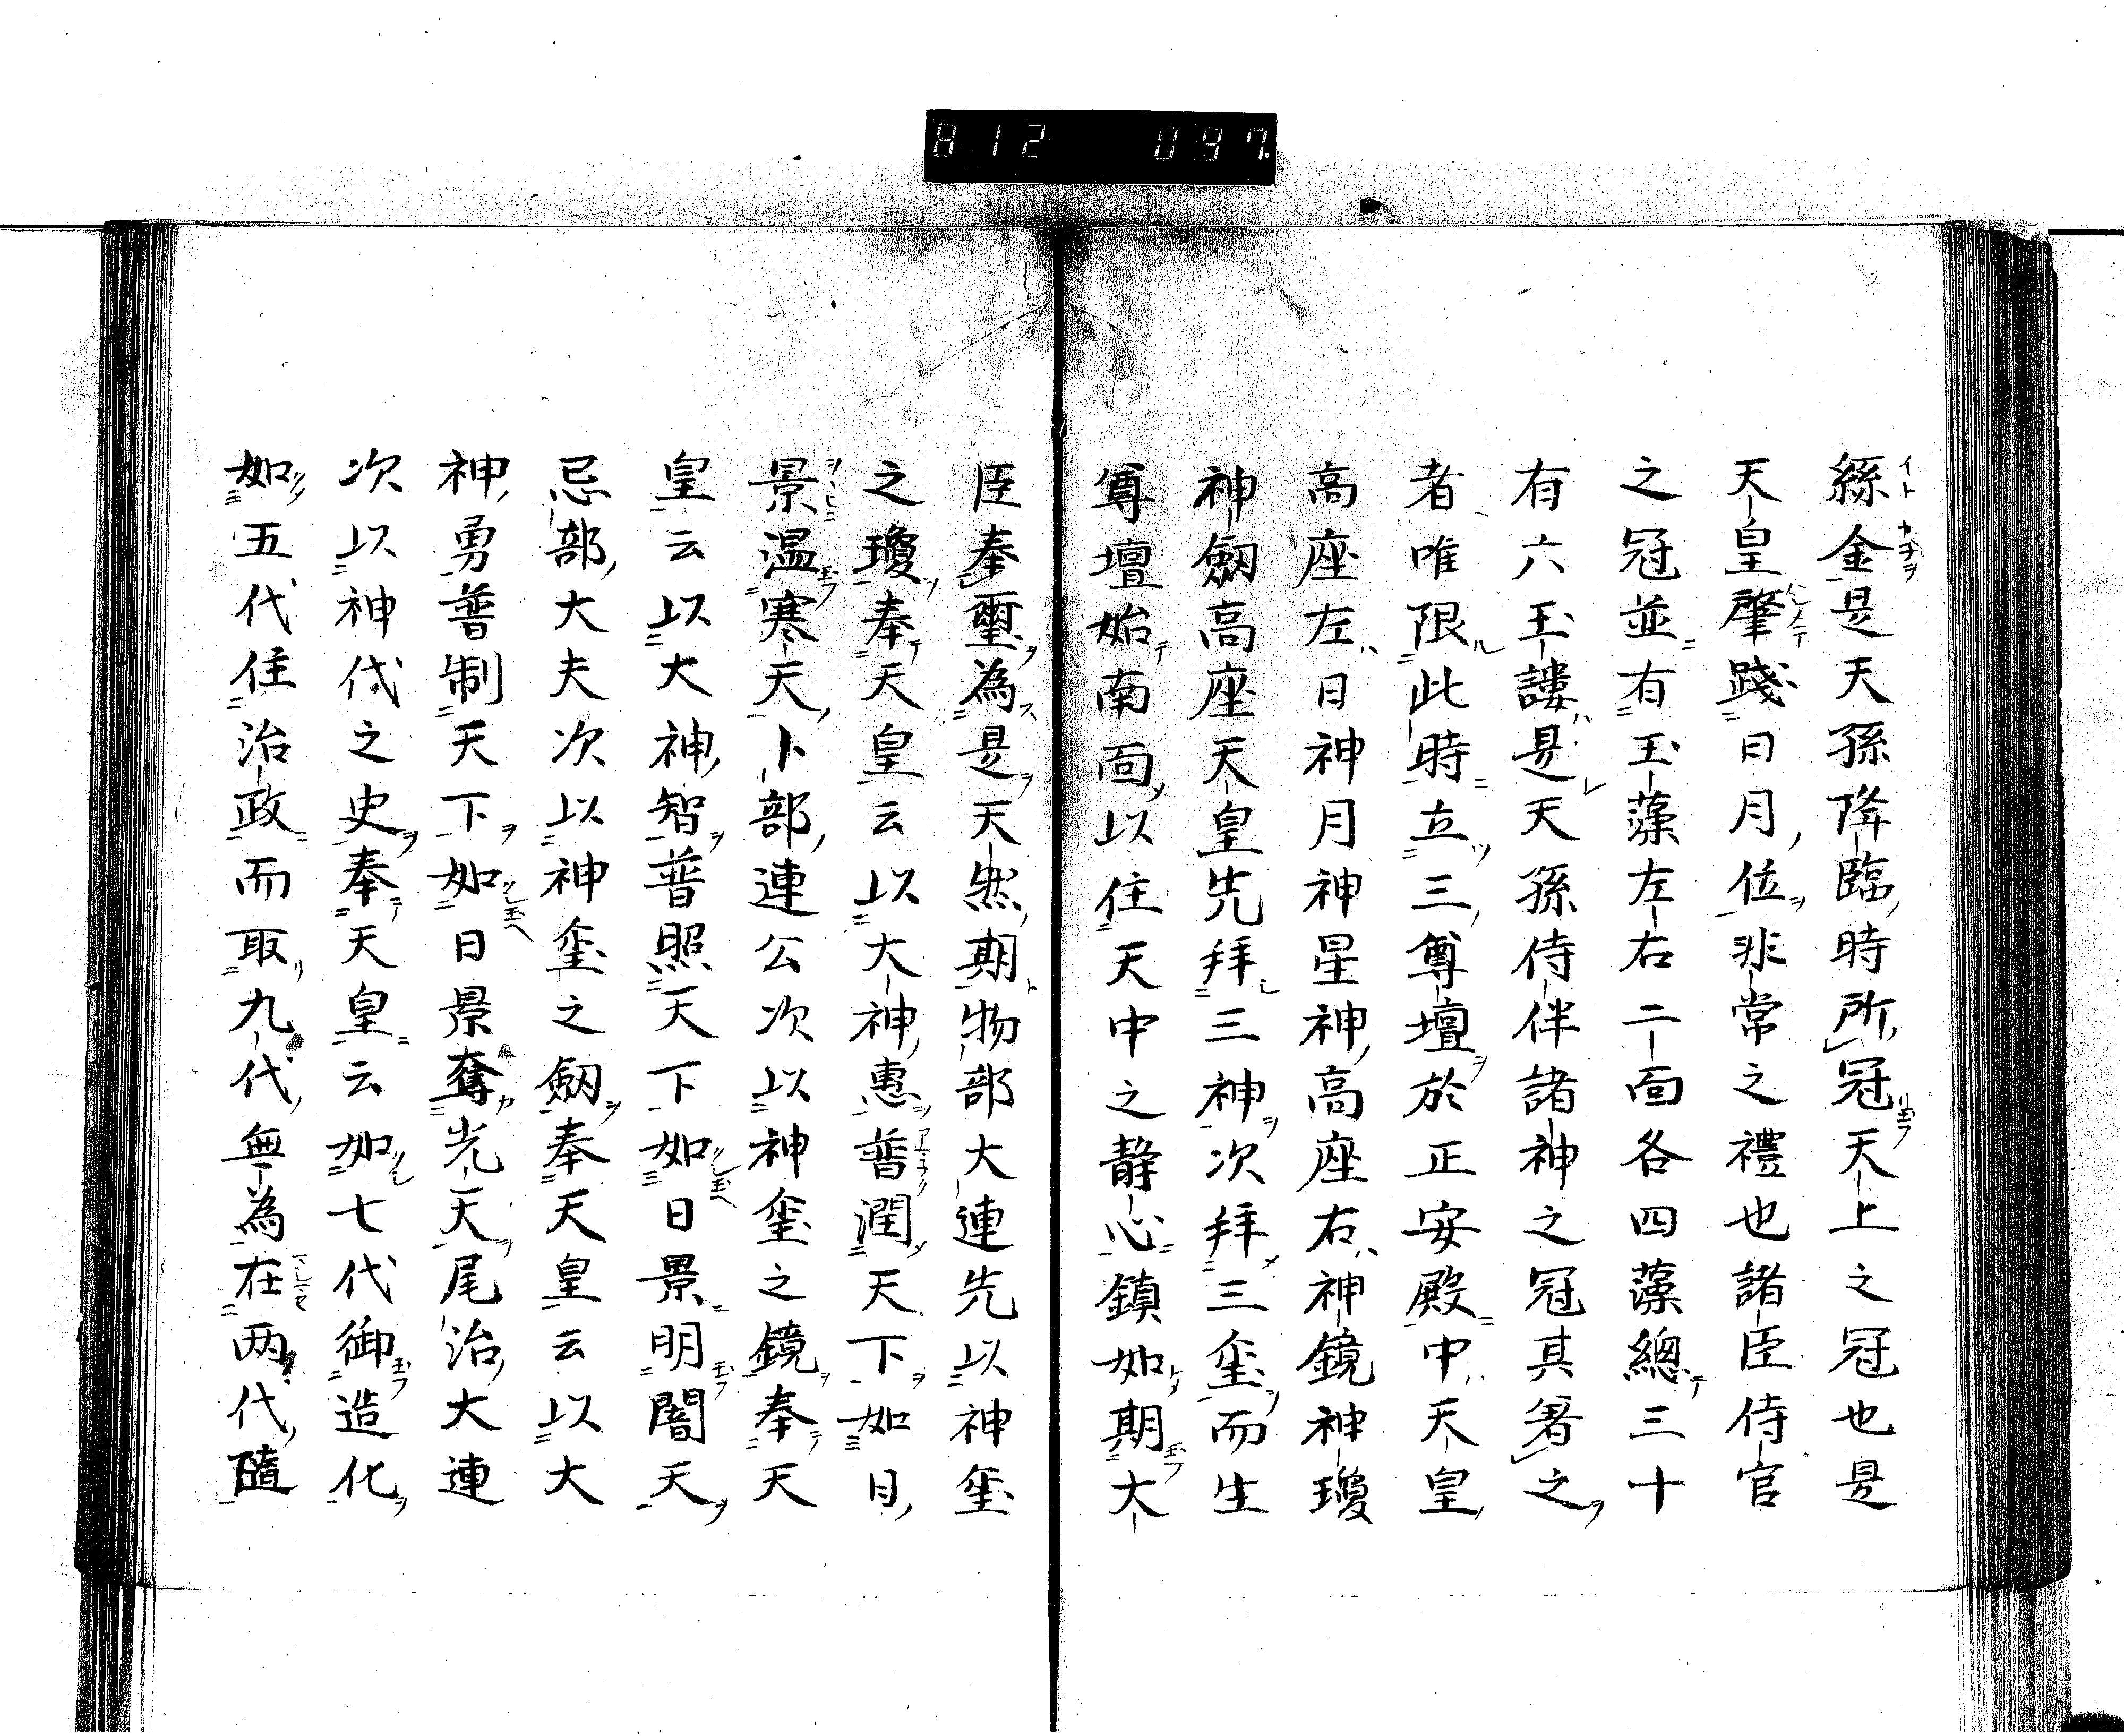 812 097
絲金是天孫降臨時所冠天上之冠也是
天皇肇踐日月位非常之禮也諸臣侍官
之冠並有玉藻左右二面各四藻總三十
有六玉謱是天孫侍伴諸神之冠其着之
者唯限此時立三尊壇於正安殿中天皇
高座左日神月神星神高座右神鏡神瓊
神劔高座天皇先拜三神次拜三玺而生
尊壇始南面以住天中之静心鎮如期大
臣奉璽為是天然期物部大連先以神玺
之瓊奉天皇云以大神惠普潤天下如日
景温寒天卜部連公次以神玺之鏡奉天
皇云以大神智普照天下如日景明闇天
忌部大夫次以神玺之劔奉天皇云以大
神勇普制天下如日景奪光天尾治大連
次以神代之史奉天皇云如七代御造化
如五代住治政而取九代無為在两代隨